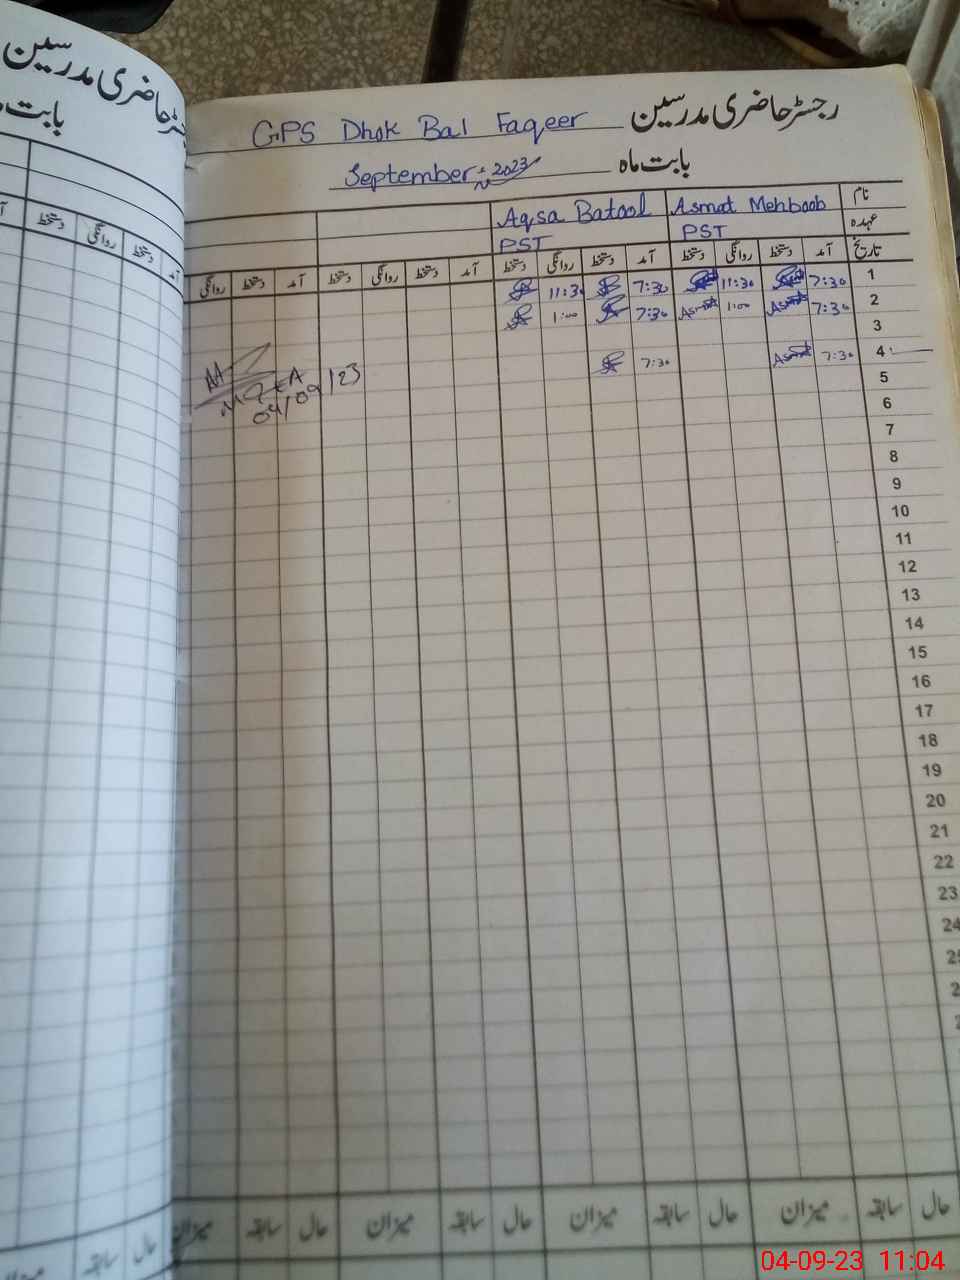 رجسٹر حاضری مدرسین GPS Dhok Bal Faqeer
بابت ماہ September 2023
نام Asmat Mehboob Aqsa Batool
عہدہ PST PST
تاریخ آمد دستخط روانگی دستخط آمد دستخط روانگی دستخط آمد دستخط روانگی دستخط آمد دستخط روانگی
1 7:30 11:30 7:30 11:30
2 7:30 Asmat 1:00 Asmat 7:30 1:00
3
4 7:30 Asmat 7:30
5
04/09/23
6
7
8
9
10
11
12
13
14
15
16
17
18
19
20
21
22
23
24
حال سابقہ میزان حال سابقہ میزان حال سابقہ میزان حال سابقہ میزان
رجسٹر حاضری مدرسین
بابت
آمد دستخط روانگی دستخط
حال سابقہ میزان
04-09-23 11:04